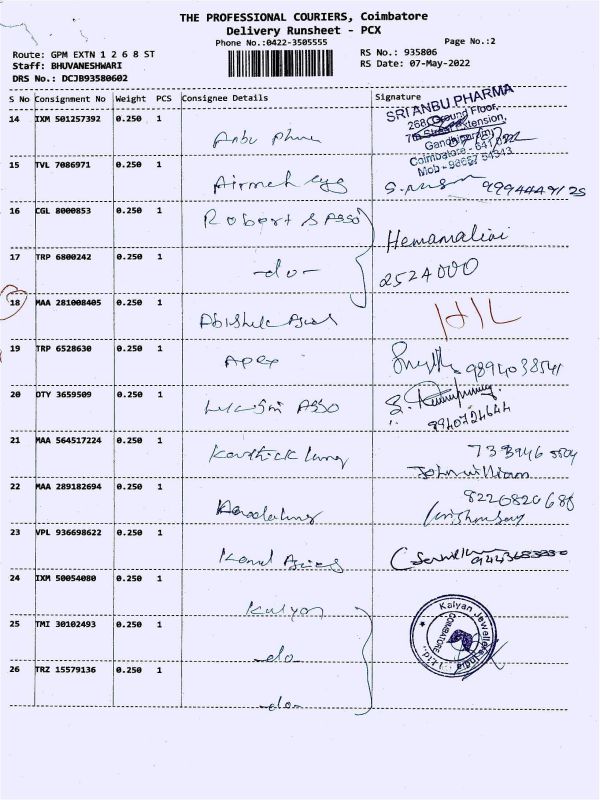 THE PROFESSIONAL COURIERS, Coimbatore
Delivery Runsheet - PCX
Phone No.:0422-3505555
Page No.:2
Route: GPM EXTN 1 2 6 8 ST
Staff: BHUVANESHWARI
DRS No.: DCJB93580602
RS No.: 935806
RS Date: 07-May-2022
S No Consignment No Weight PCS Consignee Details Signature
14 IXM 501257392 0.250 1
SRI ANBU PHARMA
268, Ground Floor,
7th Street Extension,
Gandhipuram,
Coimbatore - 641 012
Anbu
15 TVL 7086971 0.250 1 Airmech 9994449125
16 CGL 8000853 0.250 1 Robert S Asso
Hemamalini
17 TRP 6800242 0.250 1 -do- 2524000
18 MAA 281008405 0.250 1 Abishek HIL
19 TRP 6528630 0.250 1 Apex 9894038541
20 DTY 3659509 0.250 1 Asso
8940724644
21 MAA 564517224 0.250 1 Karthick
John william
22 MAA 289182694 0.250 1
23 VPL 936698622 0.250 1
24 IXM 50054080 0.250 1 Kalyan
Kalyan Jewellers India Ltd.
COIMBATORE
25 TMI 30102493 0.250 1 -do-
26 TRZ 15579136 0.250 1 -do-